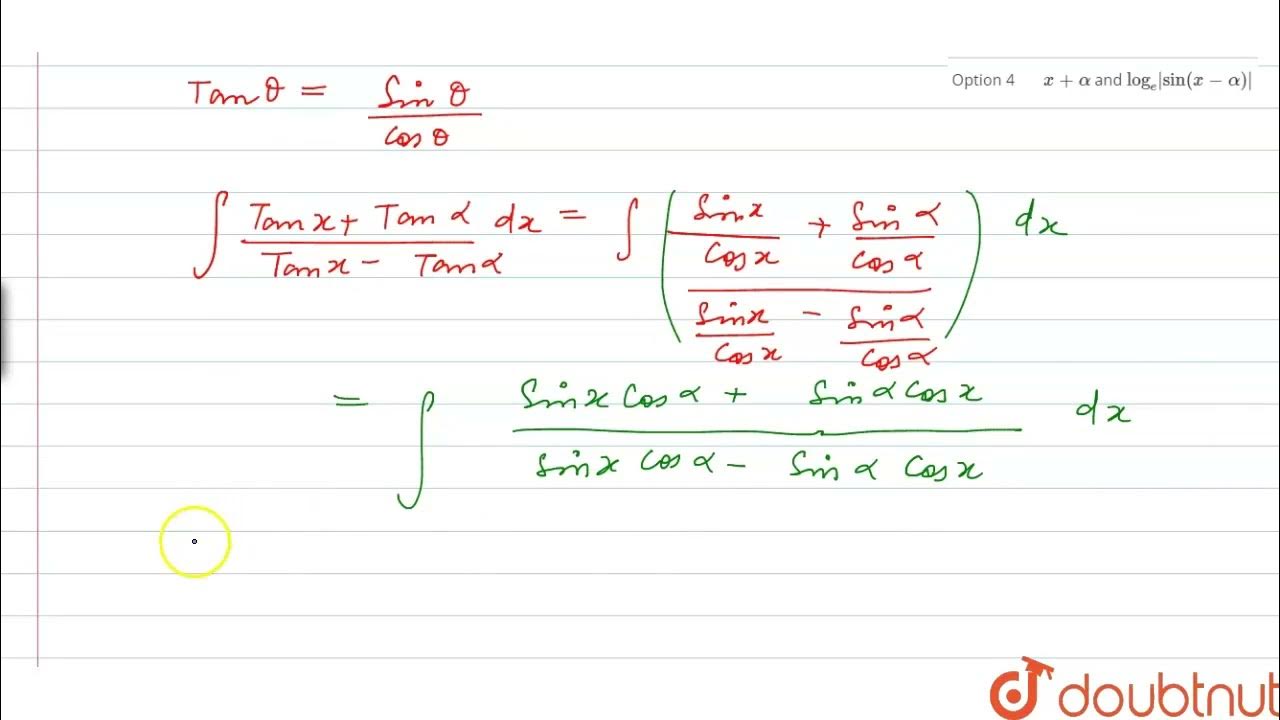 Option 4 x + α and logₑ|sin(x − α)|
Tan θ = Sin θ / Cos θ
∫ (Tan x + Tan α) / (Tan x − Tan α) dx = ∫ ((Sin x / Cos x + Sin α / Cos α) / (Sin x / Cos x − Sin α / Cos α)) dx
= ∫ (Sin x Cos α + Sin α Cos x) / (Sin x Cos α − Sin α Cos x) dx
doubtnut